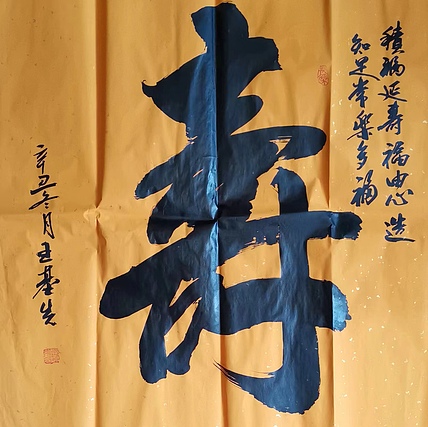 積福延壽福由心造
知足常樂多福
壽
辛丑冬月王基先